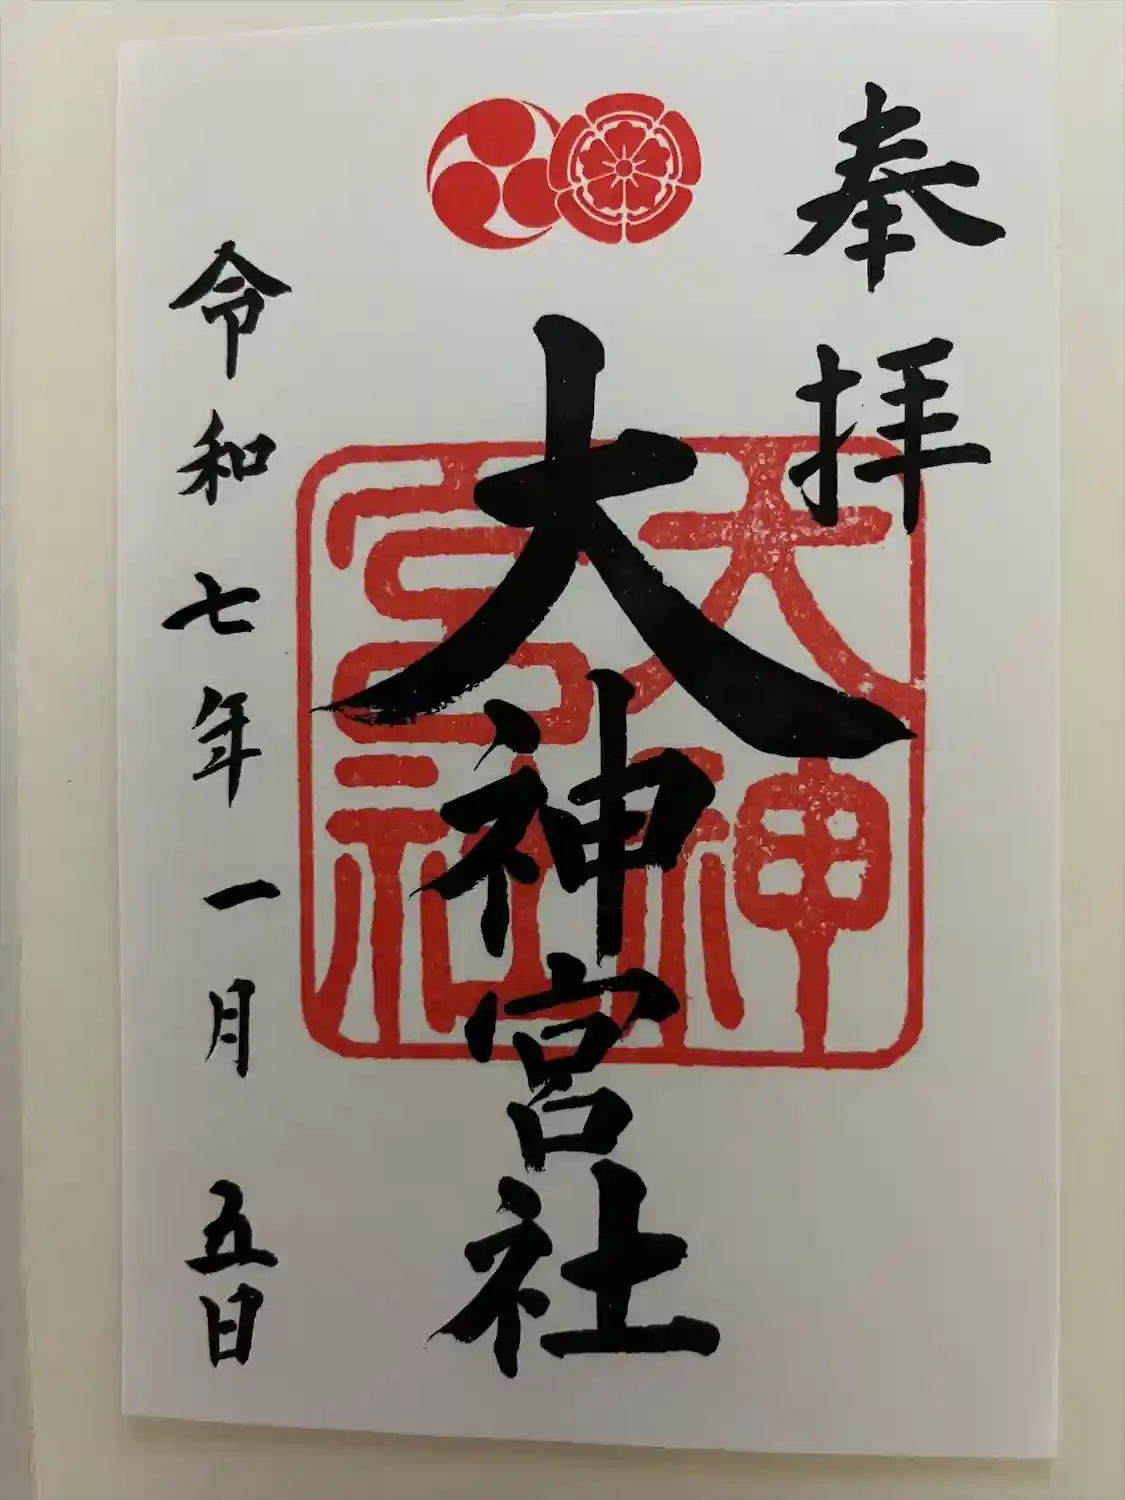 奉拝
大神宮社
大神宮社
令和七年一月五日